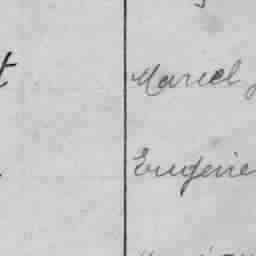 t Marcel
Eugénie